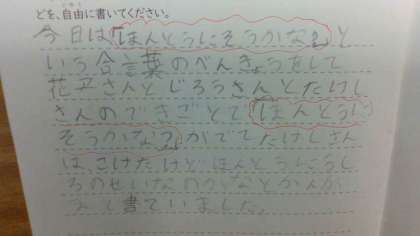 どを、自由に書いてください。
今日は「ほんとうにそうかな？」と
いう合言葉のべんきょうをして
花子さんとじろうさんとたけし
さんのできごとで「ほんとうに
そうかな？」がでてたけしさん
は、こけたけどほんとうにうし
ろのせいなのかなとかんが
えし書ていました。